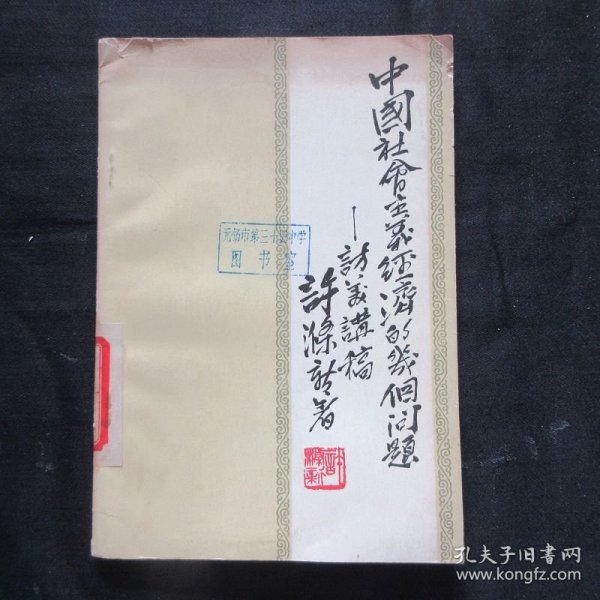 中國社會主義经濟的幾個问題
—訪美講稿
許滌新著
无锡市第三十四中学
图书室
孔夫子旧书网
www.kongfz.com